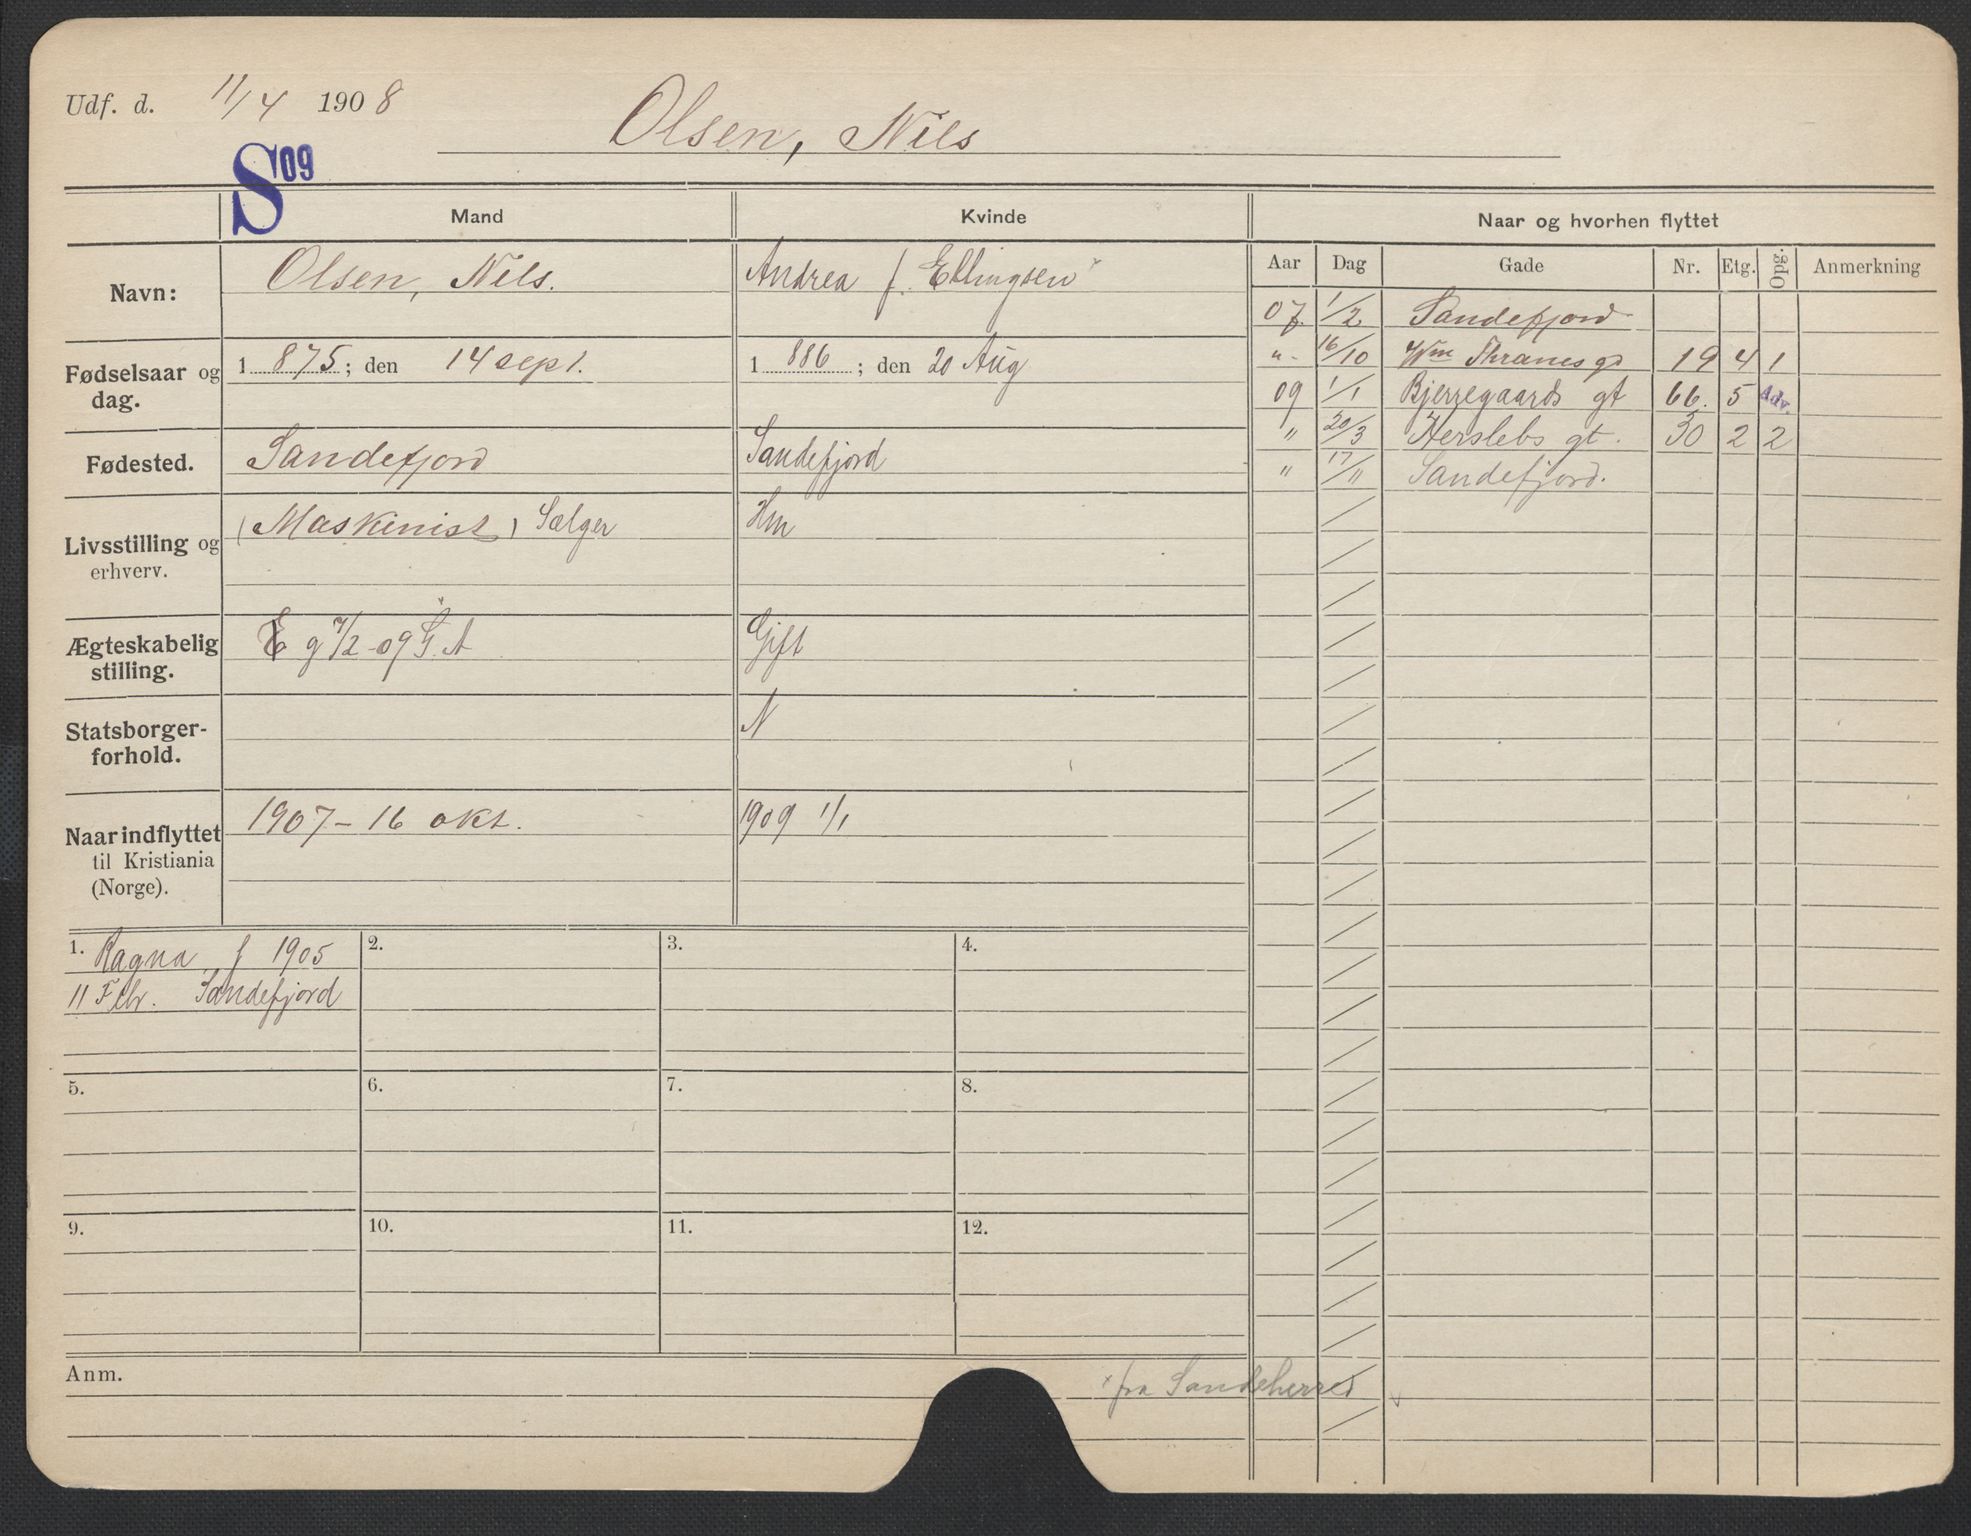 Udf. d. 11/4 1908
Olsen, Nils
S 09
Mand
Kvinde
Naar og hvorhen flyttet
Navn:
Olsen, Nils.
Andrea f. Ellingsen x
Aar Dag Gade Nr. Etg. Opg. Anmerkning
07. 1/2 Sandefjord
"- 16/10 Wm Thranesg 19 4 1
09 1/1 Bjerregaards gt 66. 5 Adv.
" 20/3 Herslebs gt. 30 2 2
" 17/11 Sandefjord.
Fødselsaar og
dag.
1 875; den 14 sept.
1 886; den 20 Aug
Fødested.
Sandefjord
Sandefjord
Livsstilling og
erhverv.
(Maskinist) Sælger
Hm
Ægteskabelig
stilling.
E g 7/2-09 F. A
Gift
Statsborger-
forhold.
N
Naar indflyttet
til Kristiania
(Norge).
1907-16 okt.
1909 1/1
1. Ragna f 1905
11 Febr. Sandefjord
2.
3.
4.
5.
6.
7.
8.
9.
10.
11.
12.
Anm.
x fra Sandeherred